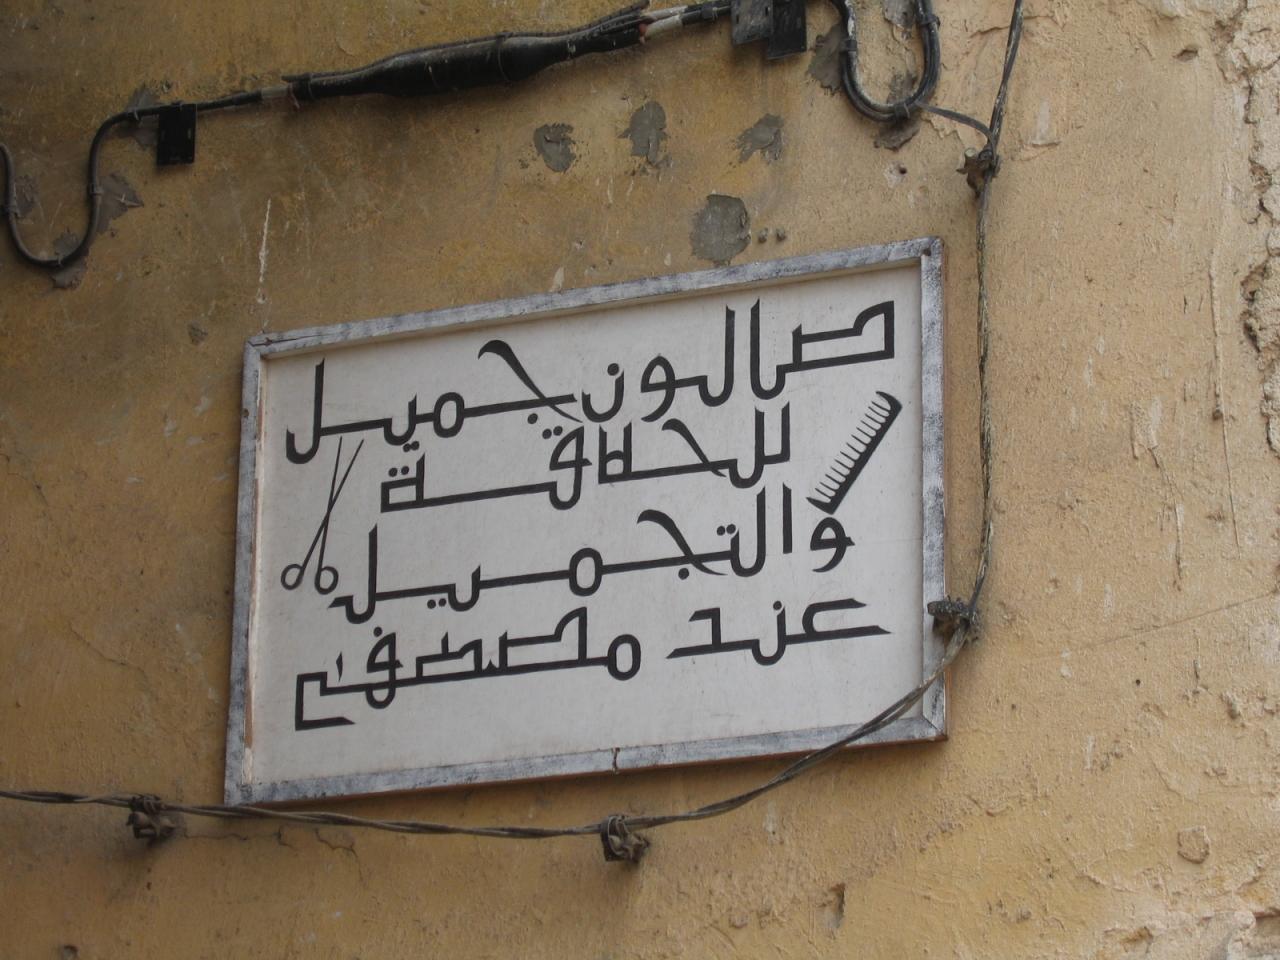 صالون جميل
للحلاقة
والتجميل
عند مصطفى